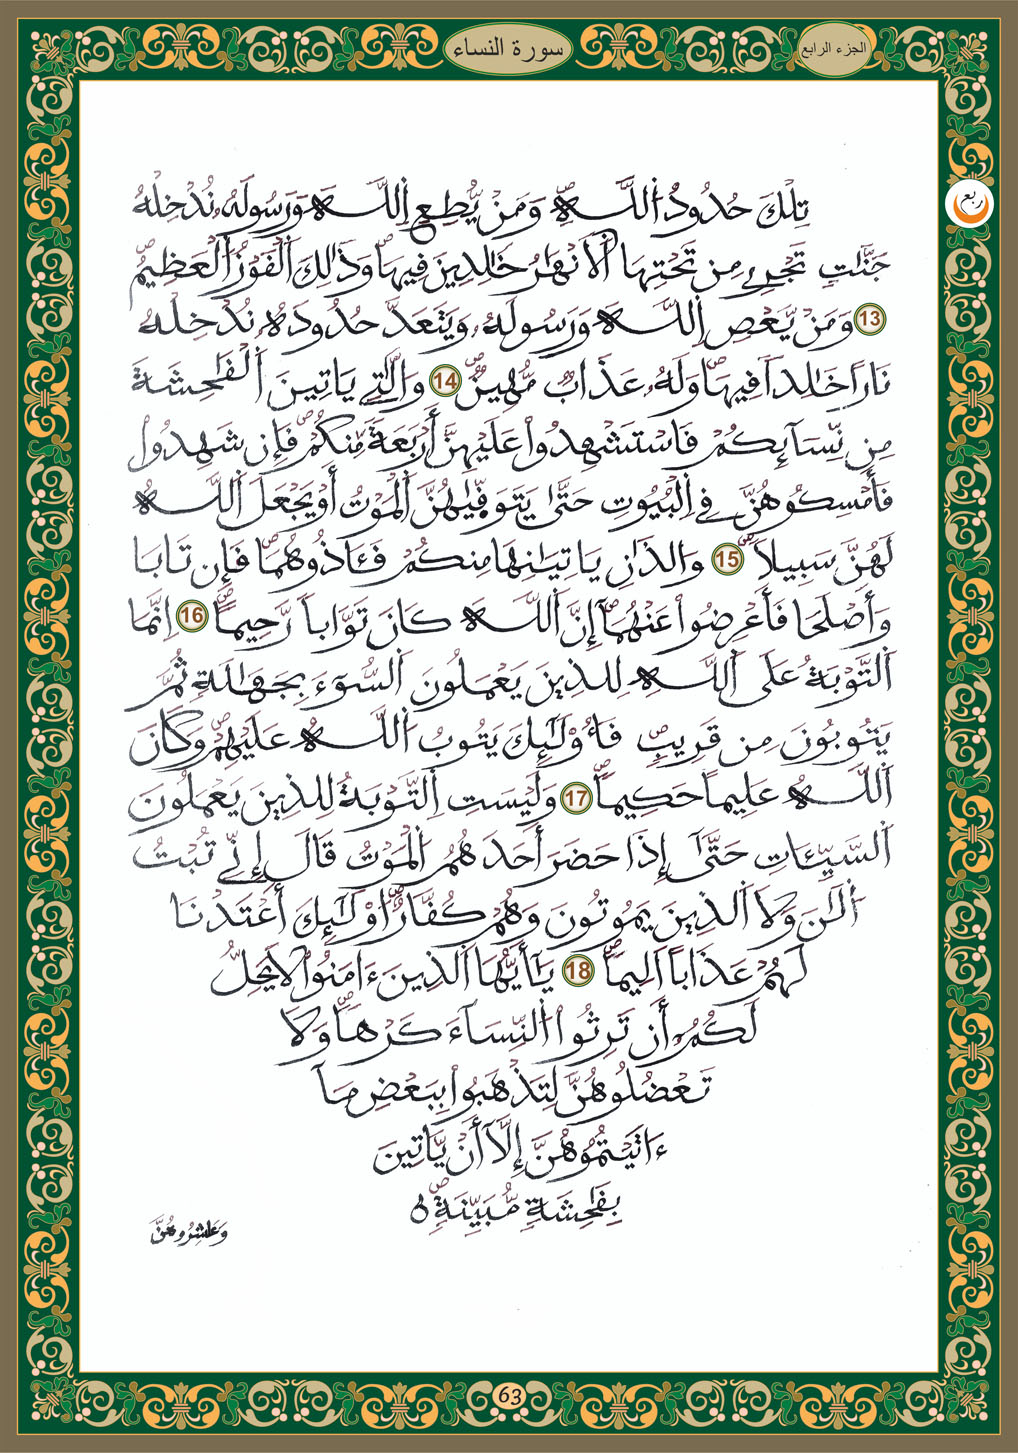 الجزء الرابع
سورة النساء
ربع
تِلْكَ حُدُودُ اُ۬للَّهِۖ وَمَنْ يُّطِعِ اِ۬للَّهَ وَرَسُولَهُۥ نُدْخِلْهُ
جَنَّٰتٖ تَجْرِے مِن تَحْتِهَا اَ۬لَانْهَٰرُ خَٰلِدِينَ فِيهَاۖ وَذَٰلِكَ اَ۬لْفَوْزُ اُ۬لْعَظِيمُۖ
13 وَمَنْ يَّعْصِ اِ۬للَّهَ وَرَسُولَهُۥ وَيَتَعَدَّ حُدُودَهُۥ نُدْخِلْهُ
نَاراً خَٰلِداٗ فِيهَاۖ وَلَهُۥ عَذَابٞ مُّهِينٞۖ 14 وَالَّٰتِے يَاتِينَ اَ۬لْفَٰحِشَةَ
مِن نِّسَآئِكُمْ فَاسْتَشْهِدُواْ عَلَيْهِنَّ أَرْبَعَةٗ مِّنكُمْۖ فَإِن شَهِدُواْ
فَأَمْسِكُوهُنَّ فِے اِ۬لْبُيُوتِ حَتَّىٰ يَتَوَفَّيٰهُنَّ اَ۬لْمَوْتُ أَوْ يَجْعَلَ اَ۬للَّهُ
لَهُنَّ سَبِيلاٗۖ 15 وَالذَٰنِ يَاتِيَٰنِهَا مِنكُمْ فَـَٔاذُوهُمَاۖ فَإِن تَابَا
وَأَصْلَحَا فَأَعْرِضُواْ عَنْهُمَآۖ إِنَّ اَ۬للَّهَ كَانَ تَوَّاباٗ رَّحِيماًۖ 16 اِنَّمَا
اَ۬لتَّوْبَةُ عَلَى اَ۬للَّهِ لِلذِينَ يَعْمَلُونَ اَ۬لسُّوٓءَ بِجَهَٰلَةٖ ثُمَّ
يَتُوبُونَ مِن قَرِيبٖ فَأُوْلَٰٓئِكَ يَتُوبُ اُ۬للَّهُ عَلَيْهِمْۖ وَكَانَ
اَ۬للَّهُ عَلِيماً حَكِيماٗۖ 17 وَلَيْسَتِ اِ۬لتَّوْبَةُ لِلذِينَ يَعْمَلُونَ
اَ۬لسَّيِّـَٔاتِ حَتَّىٰٓ إِذَا حَضَرَ أَحَدَهُمُ اُ۬لْمَوْتُ قَالَ إِنِّے تُبْتُ
اُ۬لَٰنَ وَلَا اَ۬لذِينَ يَمُوتُونَ وَهُمْ كُفَّارٌۖ اُوْلَٰٓئِكَ أَعْتَدْنَا
لَهُمْ عَذَاباً اَلِيماٗۖ 18 يَٰٓأَيُّهَا اَ۬لذِينَ ءَامَنُواْ لَا يَحِلُّ
لَكُمُۥٓ أَن تَرِثُواْ اُ۬لنِّسَآءَ كَرْهاٗۖ وَلَا
تَعْضُلُوهُنَّ لِتَذْهَبُواْ بِبَعْضِ مَآ
ءَاتَيْتُمُوهُنَّ إِلَّآ أَنْ يَّاتِينَ
بِفَٰحِشَةٖ مُّبَيِّنَةٖۖ ٥
وَعَاشِرُوهُنَّ
63